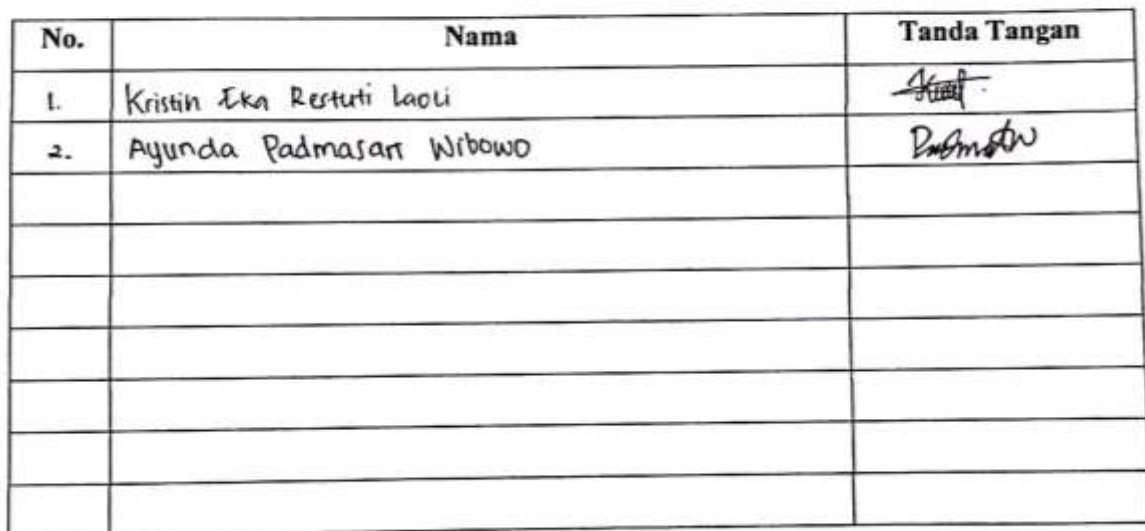 No. Nama Tanda Tangan
1. Kristin Eka Restuti Laoli
2. Ayunda Padmasari Wibowo